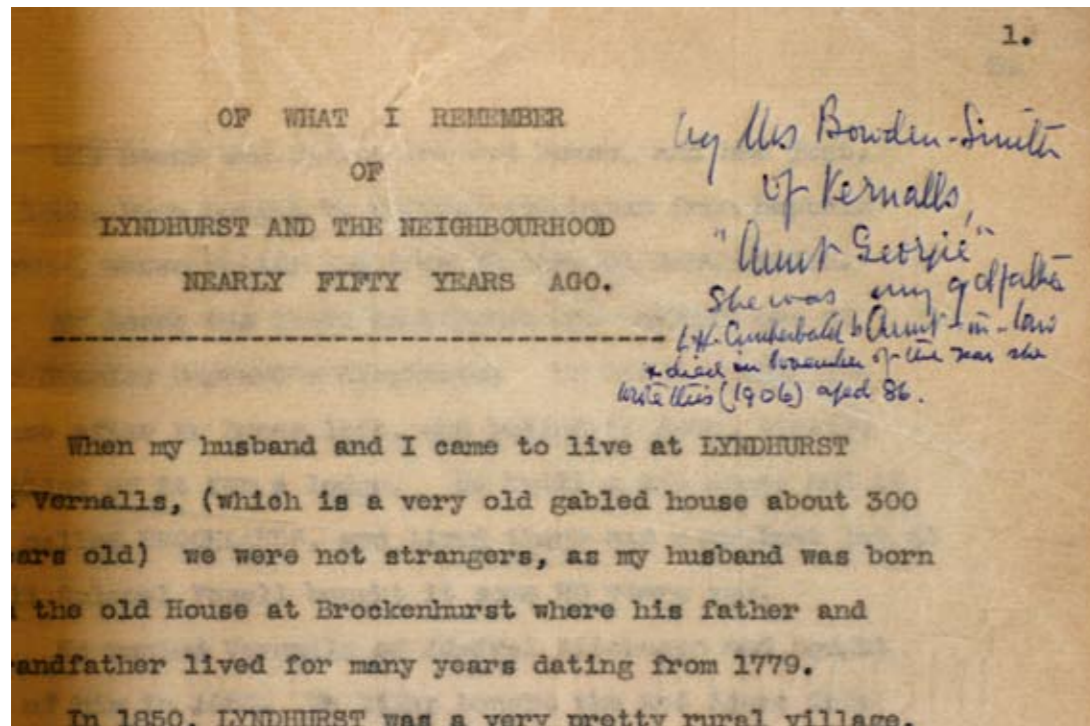 1.
OF WHAT I REMEMBER
OF
LYNDHURST AND THE NEIGHBOURHOOD
NEARLY FIFTY YEARS AGO.
by Mrs Bowden-Smith
of Vernalls,
"Aunt Georgie"
She was my
& Aunt-in-law
& died in November of the year she
wrote this (1906) aged 86.
When my husband and I came to live at LYNDHURST
Vernalls, (which is a very old gabled house about 300
ars old) we were not strangers, as my husband was born
the old House at Brockenhurst where his father and
andfather lived for many years dating from 1779.
In 1850, LYNDHURST was a very pretty rural village,